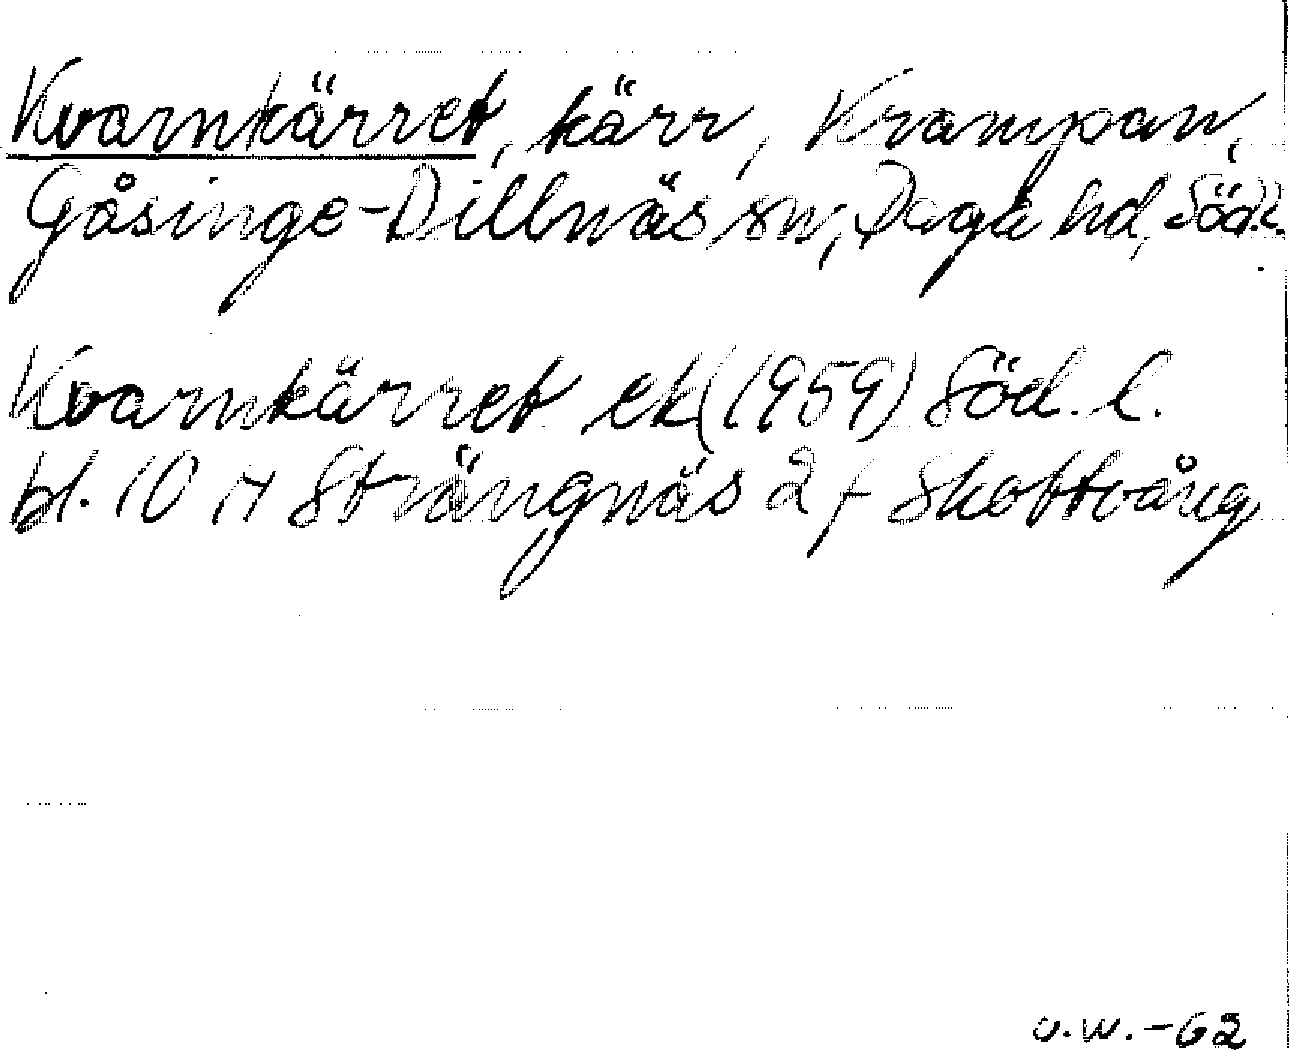 Kvarnkärret, kärr, Krampan,
Gåsinge-Dillnäs sn, Daga hd, Söd.l.
Kvarnkärret ek (1959) Söd. l.
bl. 10 H Strängnäs 2 f Skottvång
O.W. -62